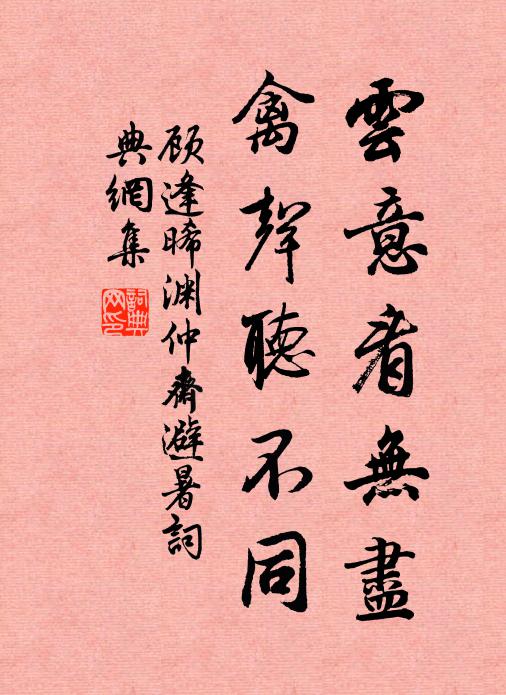 雲意看無盡
禽聲聽不同
顾逢晞渊仲齋避暑詞
典網集
詞典网印